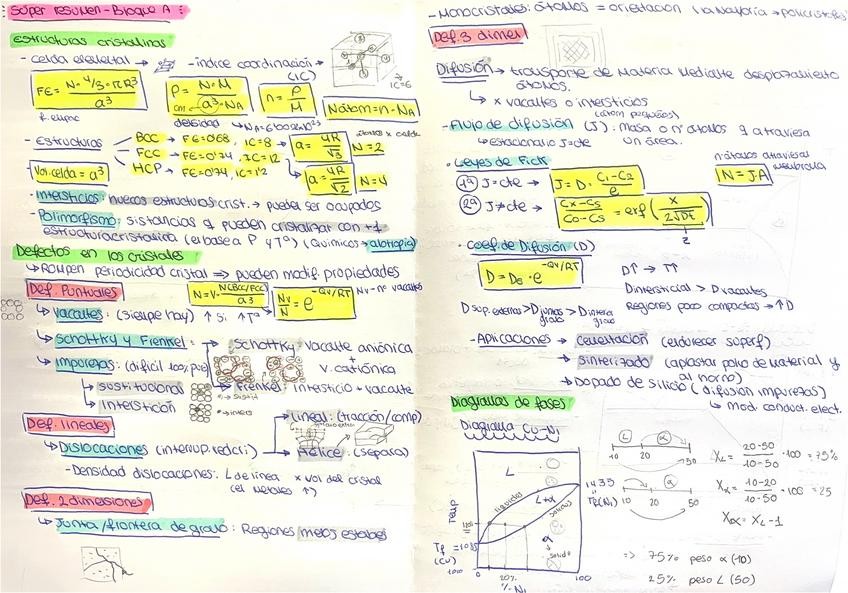 Súper resumen - Bloque A
Estructuras cristalinas
- celda elemental → - índice coordinación → (IC)
IC=6
FE = N · 4/3 · π R³ / a³
ρ = N · M / a³ · NA
n = ρ / M
Nátom = n · NA
f. empac
densidad
átomos x celda
- Estructuras
BCC → FE = 0'68, IC = 8 → a = 4R / √3 N=2
FCC → FE = 0'74, IC = 12 → a = 4R / √2 N=4
HCP → FE = 0'74, IC = 12
- Vol. celda = a³
- Intersticios: huecos estructuras crist. → pueden ser ocupados
- Polimorfismo: sustancias q pueden cristalizar con +1
estructura cristalina (en base a P y Tª) (Químicos → alotropía)
Defectos en los cristales
↳ Rompen periodicidad cristal ⇒ pueden modif. propiedades
Def. Puntuales
Nv / N = e^-Qv/RT
Nv = nº vacantes
↳ vacantes: (siempre hay) ↑ si ↑Tª
↳ Schottky y Frenkel:
Schottky: vacante aniónica
+
v. catiónica
↳ impurezas: (difícil 100% pure)
Frenkel: intersticio + vacante
↳ sustitucional
↳ intersticial
Def. lineales
↳ Dislocaciones (interrup. red cri.)
Lineal: (tracción/comp)
Hélice: (separa)
- Densidad dislocaciones: L de línea x vol del cristal
(en metales ↑)
Def. 2 dimensiones
↳ Junta/frontera de grano: Regiones menos estables
- Monocristales: átomos = orientación
Def. 3 dimen
Difusión → transporte de materia mediante desplazamiento
átomos.
↳ x vacantes o intersticios
(átom pequeños)
- Flujo de difusión (J): masa o nº átomos q atraviesa
un área.
↳ estacionario J=cte
- Leyes de Fick
nº átomos atraviesan
membrana
N = J·A
1ª J=cte → J = D · C1-C2 / e
2ª J≠cte → Cx-Cs / Co-Cs = erf ( x / 2√Dt )
z
- Coef. de Difusión (D)
D = D0 · e^-Qv/RT
D↑ → T↑
D intersticial > D vacantes
Regiones poco compactas → ↑D
D sup. externas > D juntas grano > D interior grano
- Aplicaciones → cementación (endurecer superf)
→ sinterizado (aplastar polvo de material y
al horno)
→ Dopado de silicio (difusión impurezas)
↳ mod. conduct. elect.
Diagramas de fases
Diagrama Cu-Ni
Temp
L
Líquidus
L+α
Solidus
α
Tf (Cu) = 1085
1000
0 20% 100
% Ni
1435
Tf(Ni)
L α
10 20 50
XL = 20-50 / 10-50 · 100 = 75%
α
10 20 50
Xα = 10-20 / 10-50 · 100 = 25
Xα = XL - 1
⇒ 75% peso α (10)
25% peso L (50)